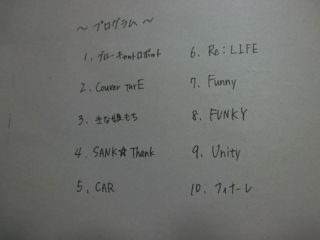 ～ プログラム ～
1. ブルーキャットロボット
2. Couver TurE
3. きな粉もち
4. SANK☆Thank
5. CAR
6. Re:LIFE
7. Funny
8. FUNKY
9. Unity
10. フィナーレ